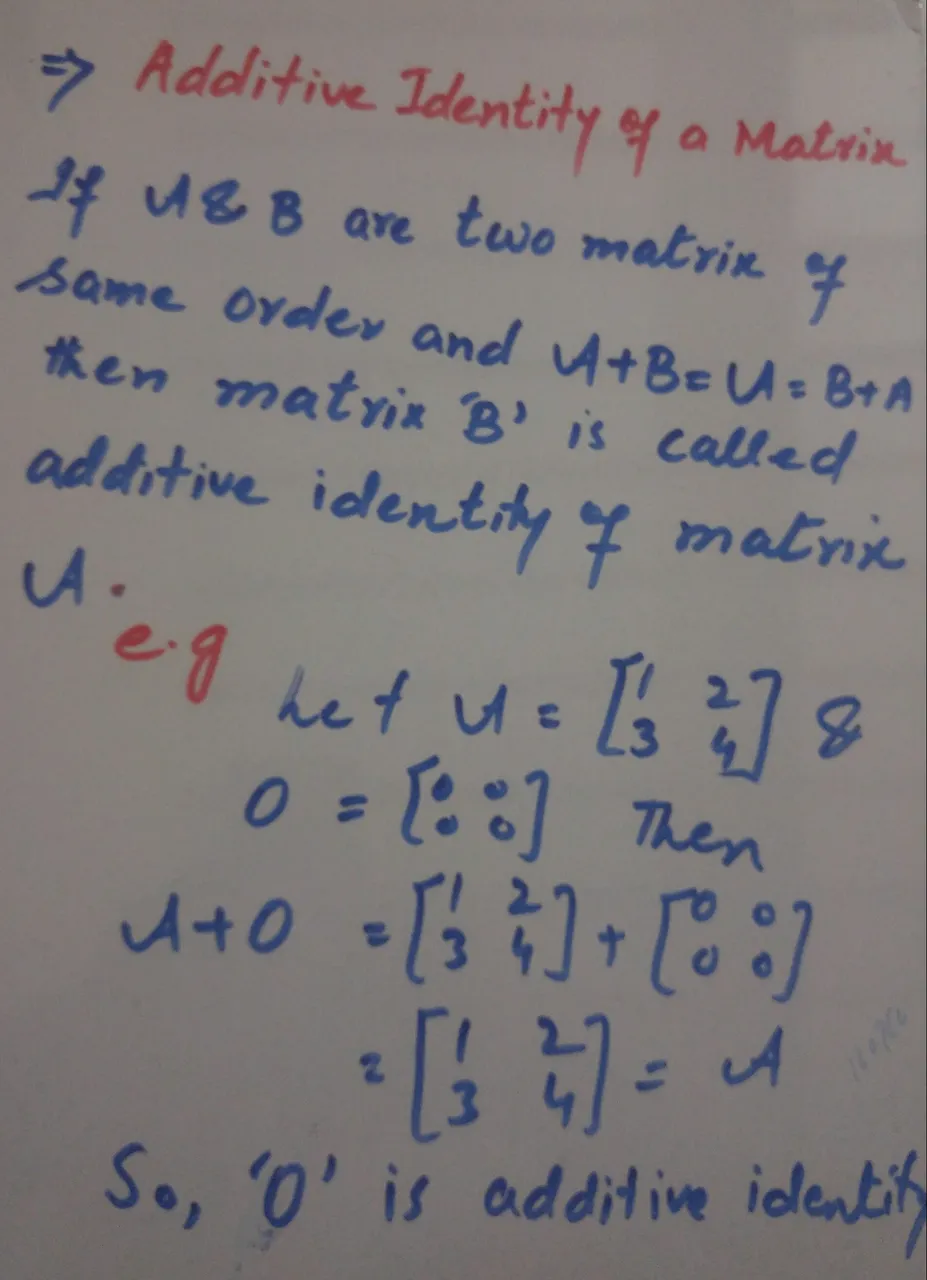 ⇒ Additive Identity of a Matrix
If A & B are two matrix of
same order and A+B=A=B+A
then matrix 'B' is called
additive identity of matrix
A.
e.g
Let A = [1 2 3 4] &
O = [0 0 0 0] Then
A+O = [1 2 3 4] + [0 0 0 0]
= [1 2 3 4] = A
So, 'O' is additive identity